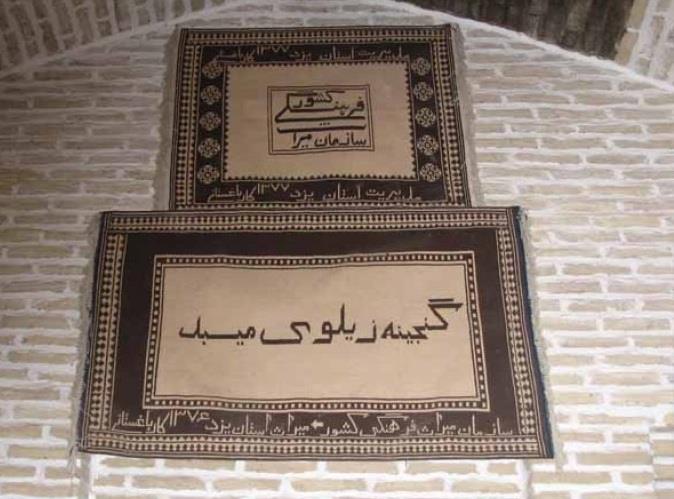 مدیریت استان یزد ۱۳۷۷ کارباغستانی
سازمان میراث
فرهنگی
کشور
مدیریت استان یزد ۱۳۷۷ کارباغستانی
گنجینه زیلوی میبد
سازمان میراث فرهنگی کشور میراث استان یزد ۱۳۷۶ کارباغستانی